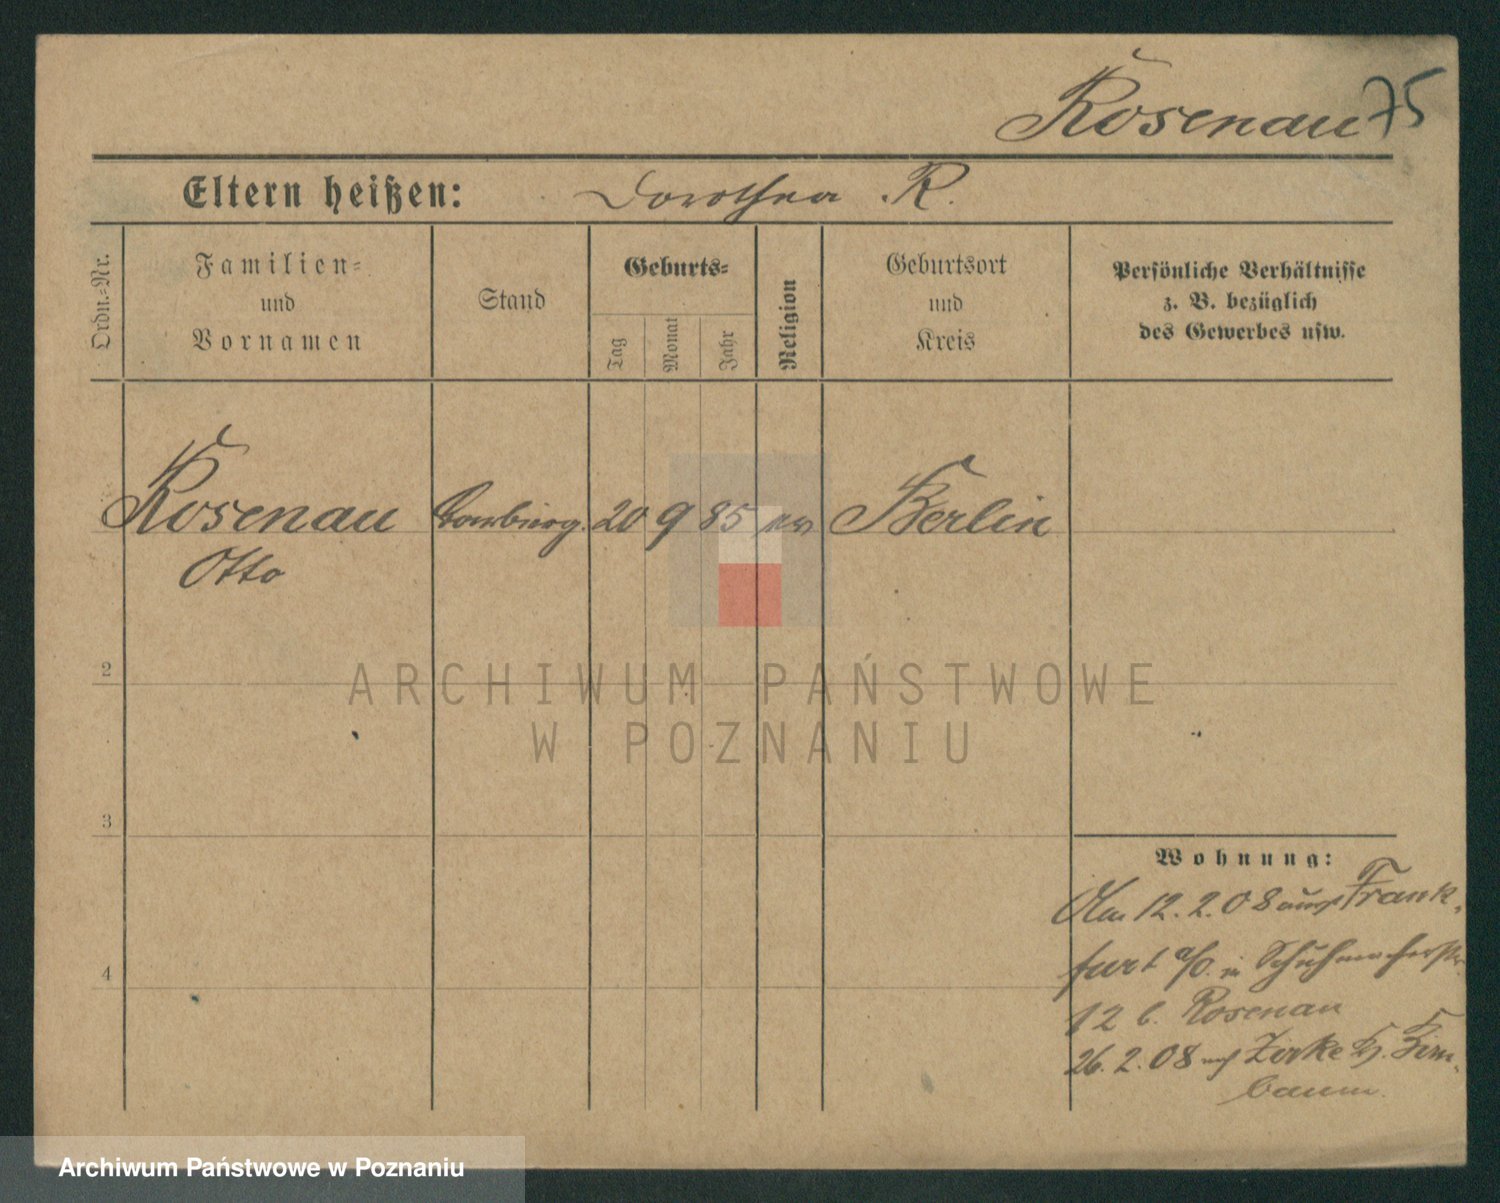 Rosenau 75
Eltern heißen: Dorothea R.
Ordn.-Nr.
Familien-
und
Vornamen
Stand
Geburts-
Tag
Monat
Jahr
Religion
Geburtsort
und
Kreis
Persönliche Verhältnisse
z. B. bezüglich
des Gewerbes usw.
Rosenau 20 9 85 ev Berlin
Otto
2
ARCHIWUM PAŃSTWOWE
W POZNANIU
3
Wohnung:
Am 12.2.08 aus Frank-
furt a/O. in Schuhmacherstr
4
12 b. Rosenau
26.2.08 nach Zirke Kr. Birn-
baum.
Archiwum Państwowe w Poznaniu